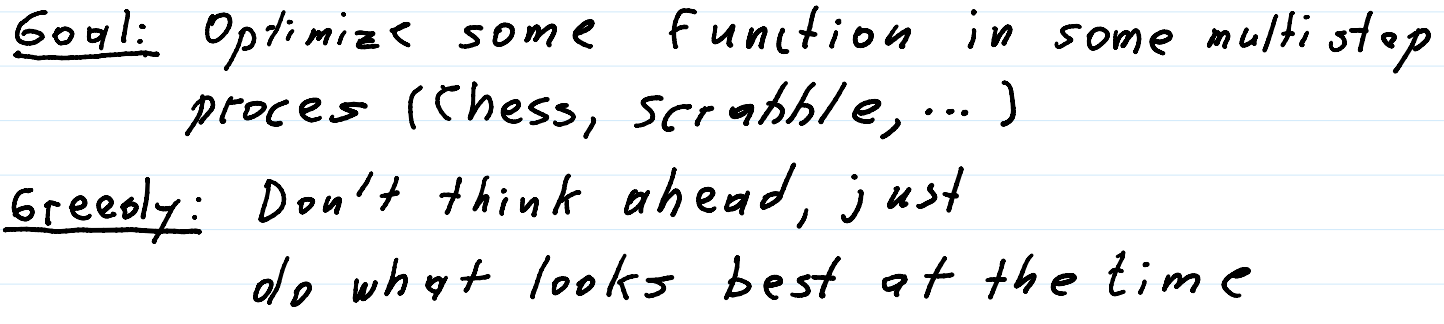 Goal: Optimize some function in some multistep
proces (Chess, Scrabble, ... )
Greedy: Don't think ahead, just
do what looks best at the time